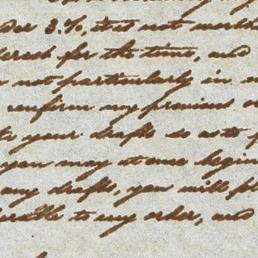 der 3%, it is not worth
terest for the time, and
not particularly in
confirm my previous
to your drafts so as to
you may at once begin
any drafts, you will pl
erable to my order, and